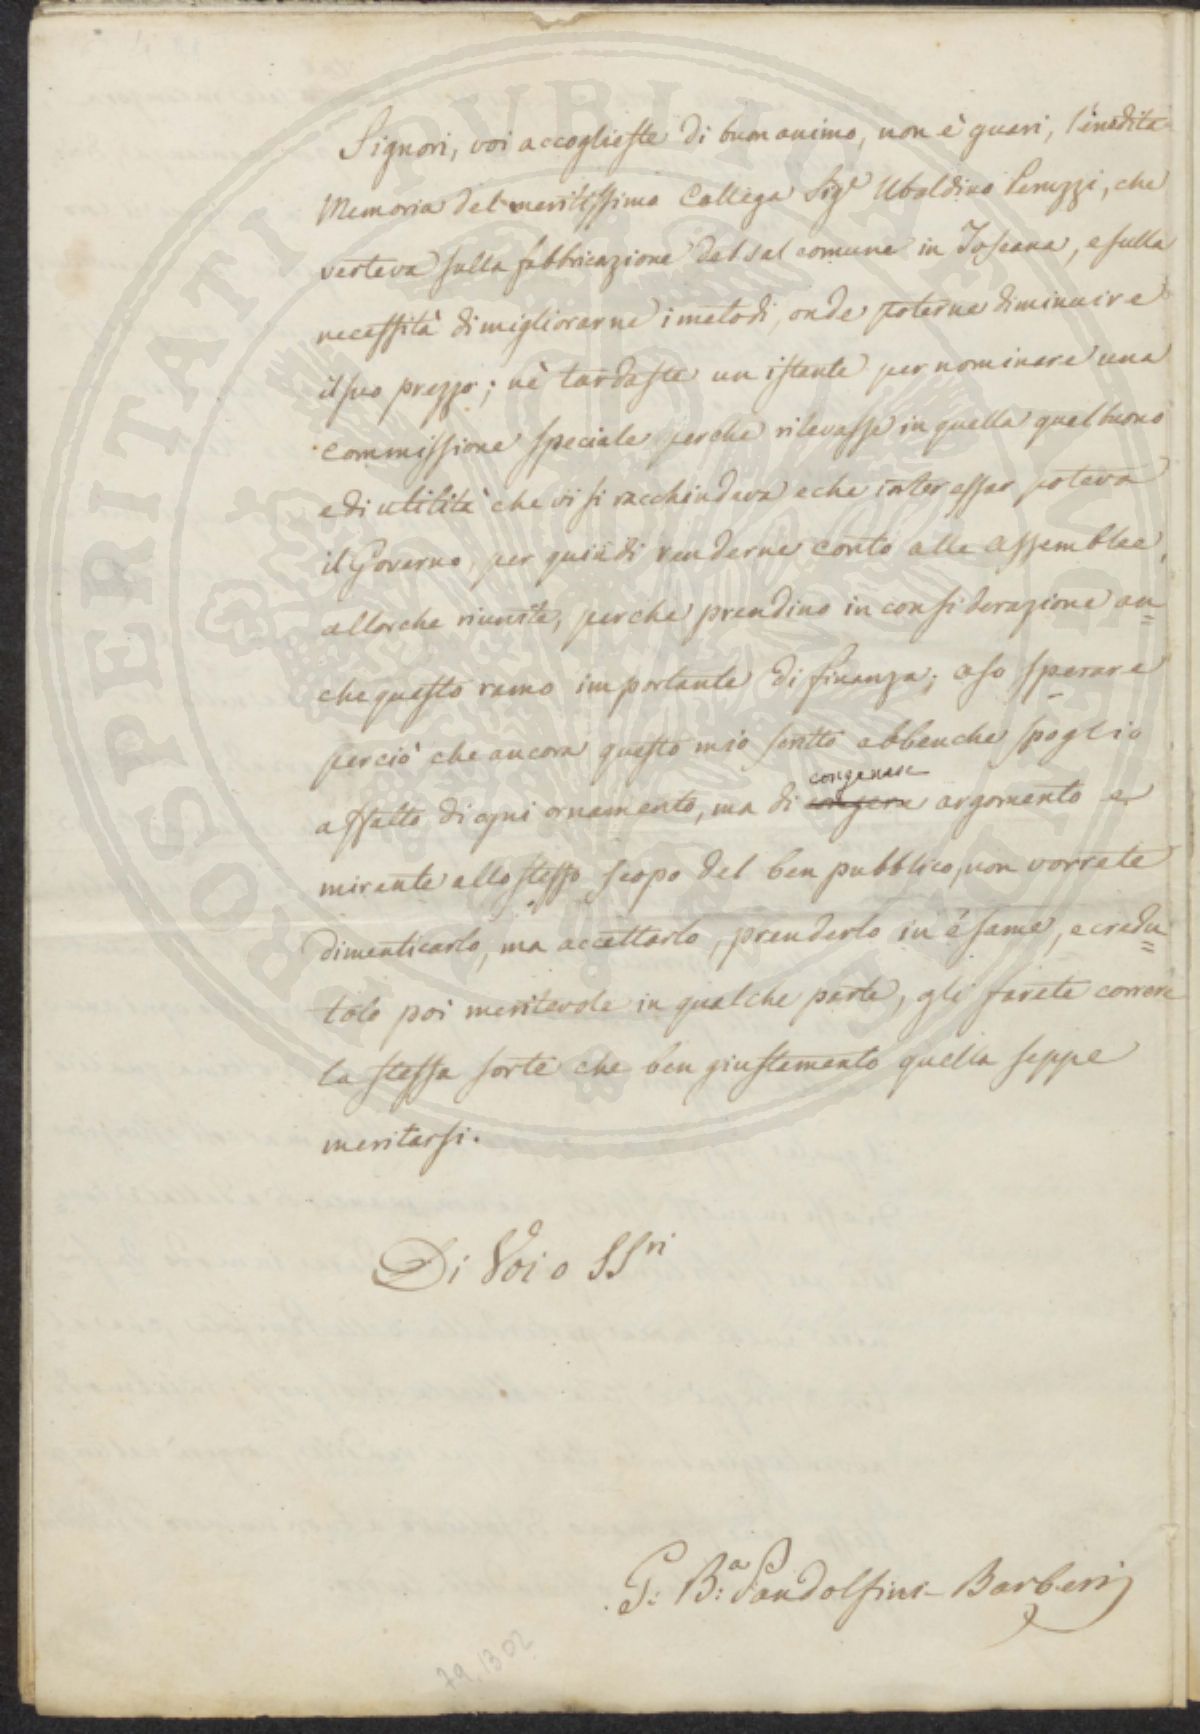 Signori, voi accoglieste di buon animo, non è guari, l'inedita
Memoria del meritissimo Collega Sig.r Ubaldino Peruzzi, che
verteva sulla fabbricazione del sal comune in Toscana, e sulla
necessità di migliorarne i metodi, onde poterne diminuire
il suo prezzo; nè tardaste un istante per nominare una
commissione speciale perche rilevasse in quella quel buono
e di utilità che vi si racchiudeva e che interessar poteva
il Governo, per quindi renderne conto alle assemblee,
allorche riunite, perche prendino in considerazione an=
che questo ramo importante di finanza; oso sperare
perciò che ancora questo mio scritto abbenche spoglio
affatto di ogni ornamento, ma di congenere argomento e
mirante allo stesso scopo del ben pubblico, non vorrete
dimenticarlo, ma accettarlo, prenderlo in esame, e credu=
tolo poi meritevole in qualche parte, gli farete correre
la stessa sorte che ben giustamente quella seppe
meritarsi.
Di Voi o SS.ri
G: B:a Pandolfini-Barberi
79.1302
PROSPERITATI PUBLICAE AUGENDAE